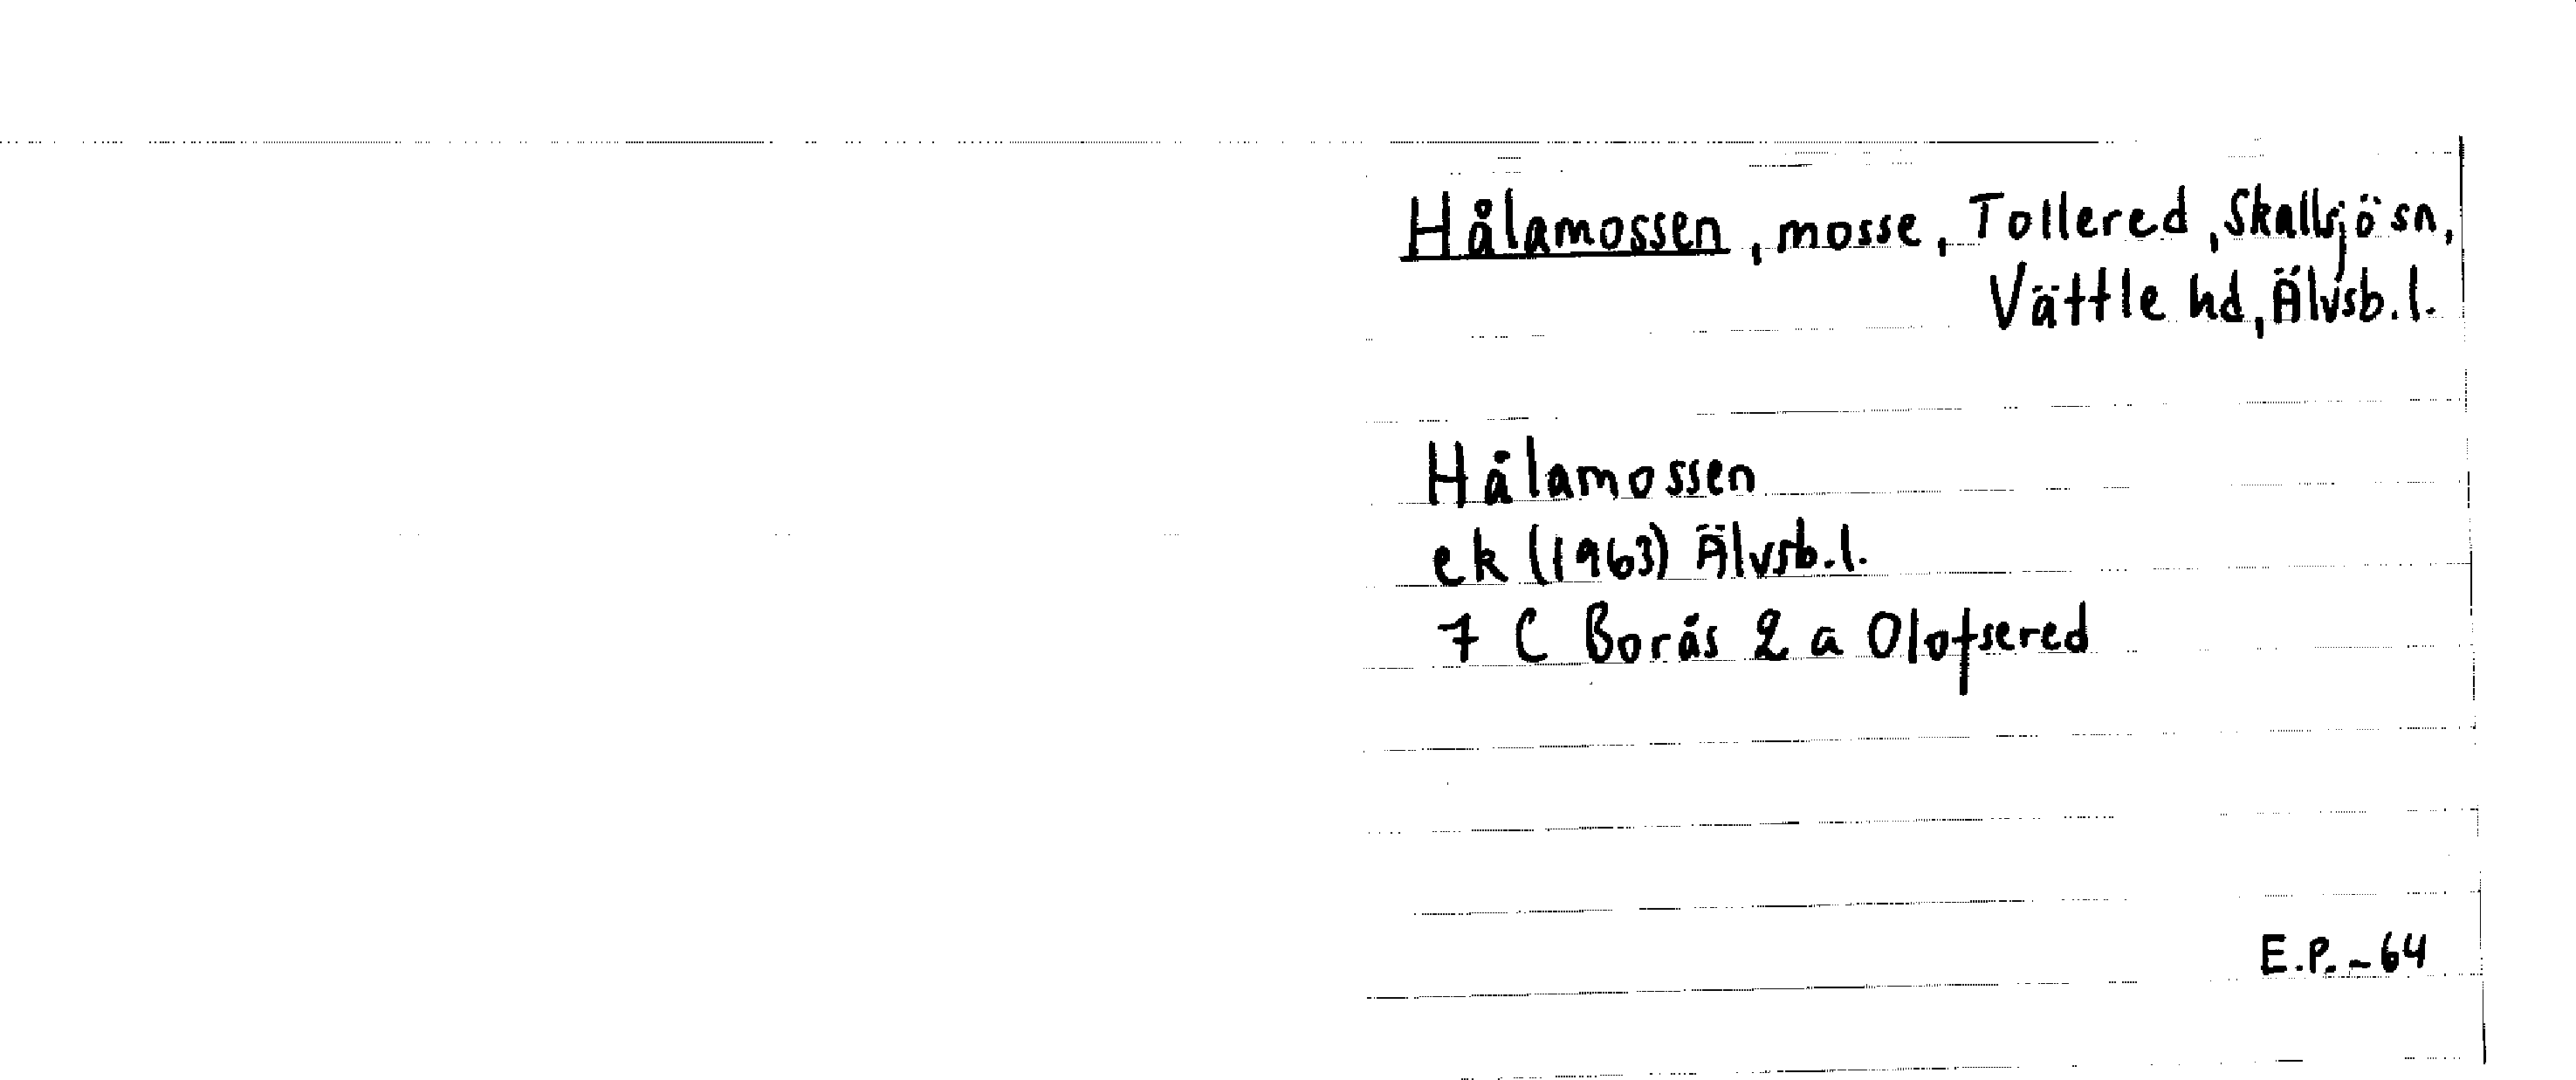 Hålamossen, mosse, Tollered, Skallsjö sn,
Vättle hd, Älvsb.l.
Hålamossen
ek (1963) Älvsb.l.
7 C Borås 2 a Olofsered
E.P. -64